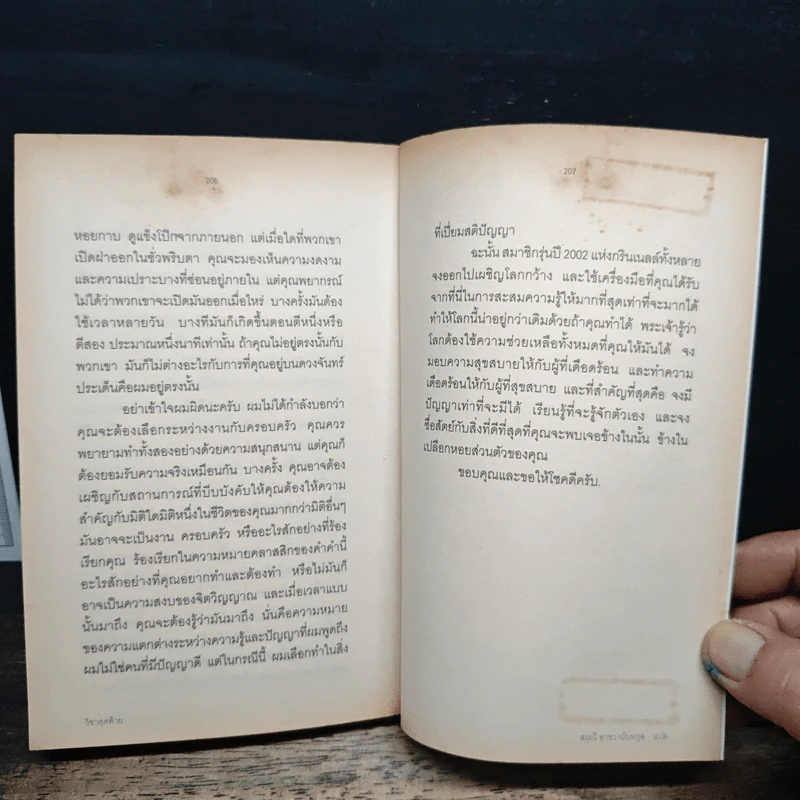 206
หอยกาบ ดูแข็งโป๊กจากภายนอก แต่เมื่อใดที่พวกเขา
เปิดฝาออกในชั่วพริบตา คุณจะมองเห็นความงดงาม
และความเปราะบางที่ซ่อนอยู่ภายใน แต่คุณพยากรณ์
ไม่ได้ว่าพวกเขาจะเปิดมันออกเมื่อไหร่ บางครั้งมันต้อง
ใช้เวลาหลายวัน บางทีมันก็เกิดขึ้นตอนตีหนึ่งหรือ
ตีสอง ประมาณหนึ่งนาทีเท่านั้น ถ้าคุณไม่อยู่ตรงนั้นกับ
พวกเขา มันก็ไม่ต่างอะไรกับการที่คุณอยู่บนดวงจันทร์
ประเด็นคือผมอยู่ตรงนั้น
อย่าเข้าใจผมผิดนะครับ ผมไม่ได้กำลังบอกว่า
คุณจะต้องเลือกระหว่างงานกับครอบครัว คุณควร
พยายามทำทั้งสองอย่างด้วยความสนุกสนาน แต่คุณก็
ต้องยอมรับความจริงเหมือนกัน บางครั้ง คุณอาจต้อง
เผชิญกับสถานการณ์ที่บีบบังคับให้คุณต้องให้ความ
สำคัญกับมิติใดมิติหนึ่งในชีวิตของคุณมากกว่ามิติอื่นๆ
มันอาจจะเป็นงาน ครอบครัว หรืออะไรสักอย่างที่ร้อง
เรียกคุณ ร้องเรียกในความหมายคลาสสิกของคำคำนี้
อะไรสักอย่างที่คุณอยากทำและต้องทำ หรือไม่มันก็
อาจเป็นความสงบของจิตวิญญาณ และเมื่อเวลาแบบ
นั้นมาถึง คุณจะต้องรู้ว่ามันมาถึง นั่นคือความหมาย
ของความแตกต่างระหว่างความรู้และปัญญาที่ผมพูดถึง
ผมไม่ใช่คนที่มีปัญญาดี แต่ในกรณีนี้ ผมเลือกทำในสิ่ง
วิชาสุดท้าย
207
ที่เปี่ยมสติปัญญา
ฉะนั้น สมาชิกรุ่นปี 2002 แห่งกรินเนลล์ทั้งหลาย
จงออกไปเผชิญโลกกว้าง และใช้เครื่องมือที่คุณได้รับ
จากที่นี่ในการสะสมความรู้ให้มากที่สุดเท่าที่จะมากได้
ทำให้โลกนี้น่าอยู่กว่าเดิมถ้าคุณทำได้ พระเจ้ารู้ว่า
โลกต้องใช้ความช่วยเหลือทั้งหมดที่คุณให้มันได้ จง
มอบความสุขสบายให้กับผู้ที่เดือดร้อน และทำความ
เดือดร้อนให้กับผู้ที่สุขสบาย และที่สำคัญที่สุดคือ จงมี
ปัญญาเท่าที่จะมีได้ เรียนรู้ที่จะรู้จักตัวเอง และจง
ซื่อสัตย์กับสิ่งที่ดีที่สุดที่คุณจะพบเจอข้างในนั้น ข้างใน
เปลือกหอยส่วนตัวของคุณ
ขอบคุณและขอให้โชคดีครับ.
สฤณี อาชวานันทกุล : แปล